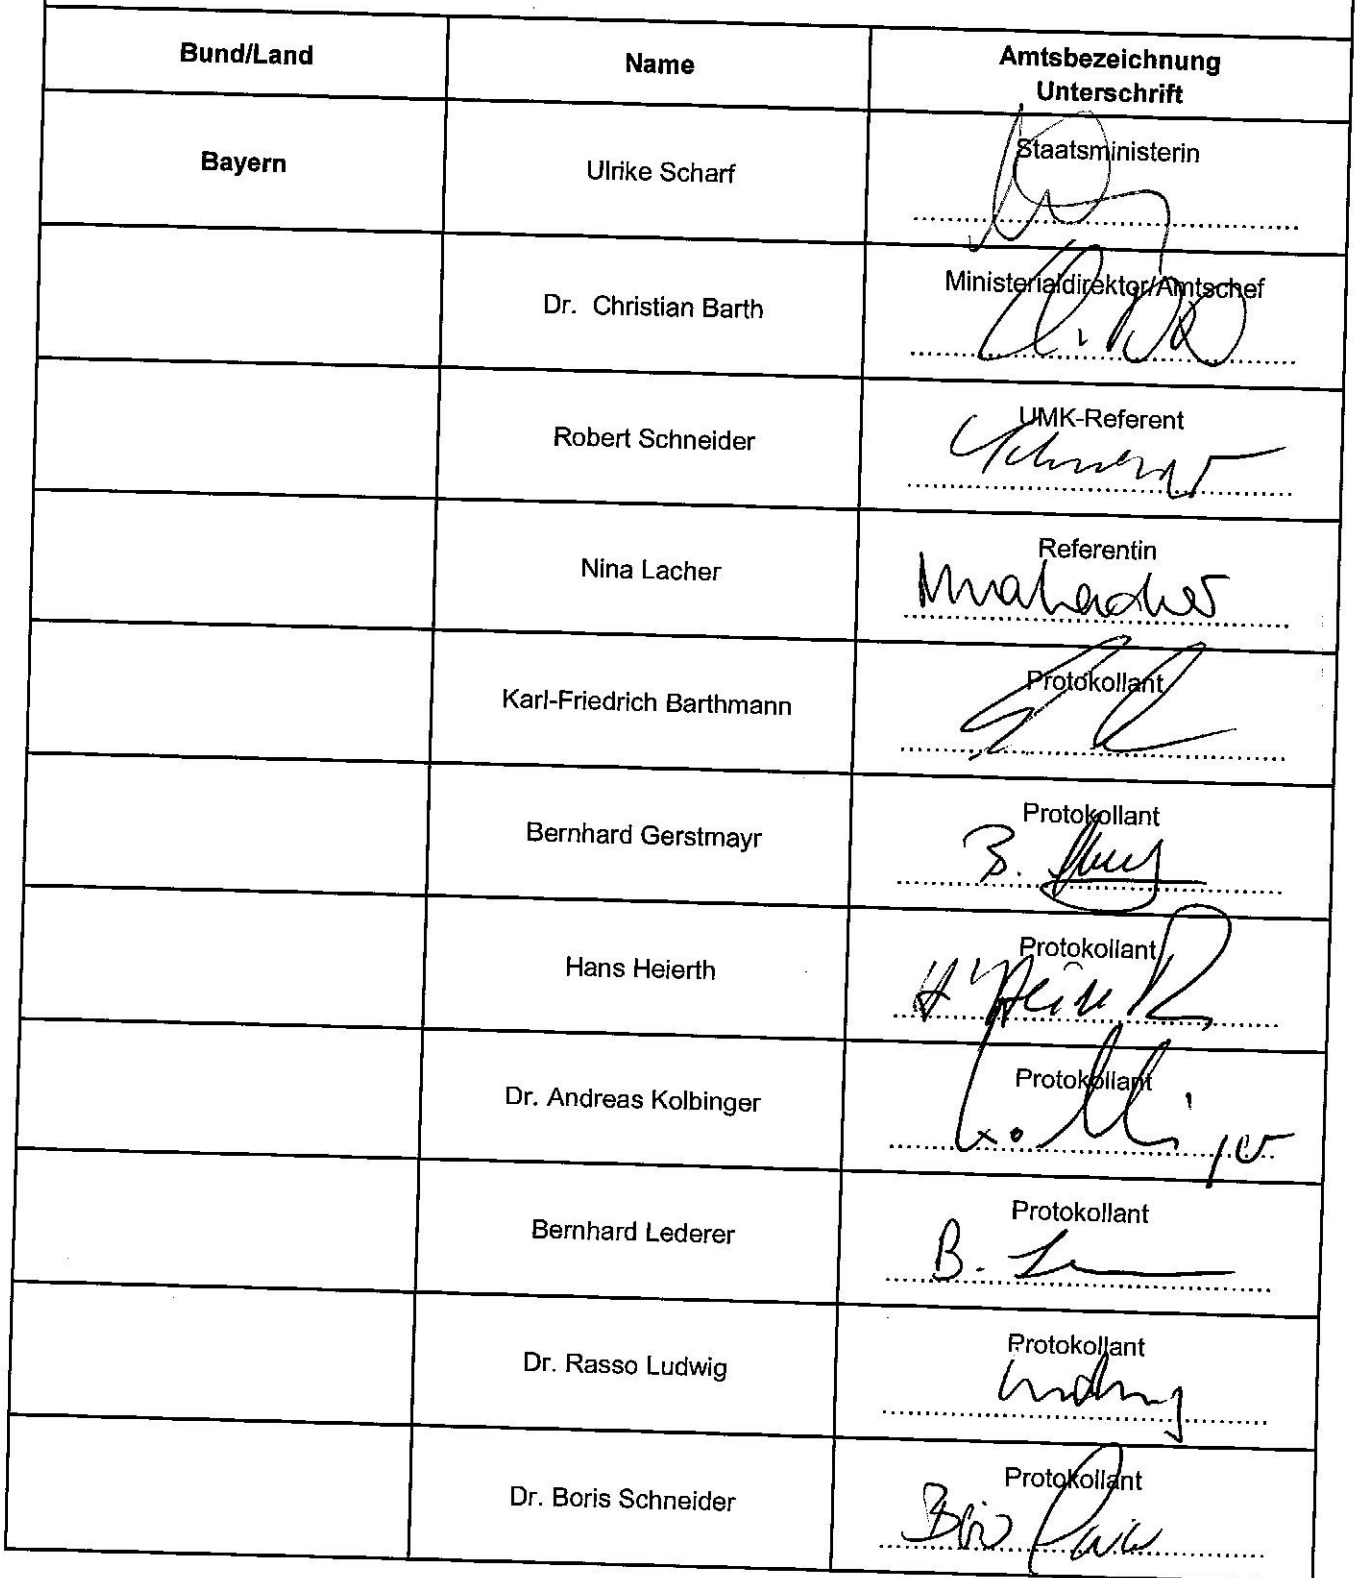 Bund/Land
Name
Amtsbezeichnung
Unterschrift
Bayern
Ulrike Scharf
Staatsministerin
Dr. Christian Barth
Ministerialdirektor/Amtschef
Robert Schneider
UMK-Referent
Nina Lacher
Referentin
Nina Lacher
Karl-Friedrich Barthmann
Protokollant
Bernhard Gerstmayr
Protokollant
B.
Hans Heierth
Protokollant
Dr. Andreas Kolbinger
Protokollant
Bernhard Lederer
Protokollant
B.
Dr. Rasso Ludwig
Protokollant
Ludwig
Dr. Boris Schneider
Protokollant
Boris